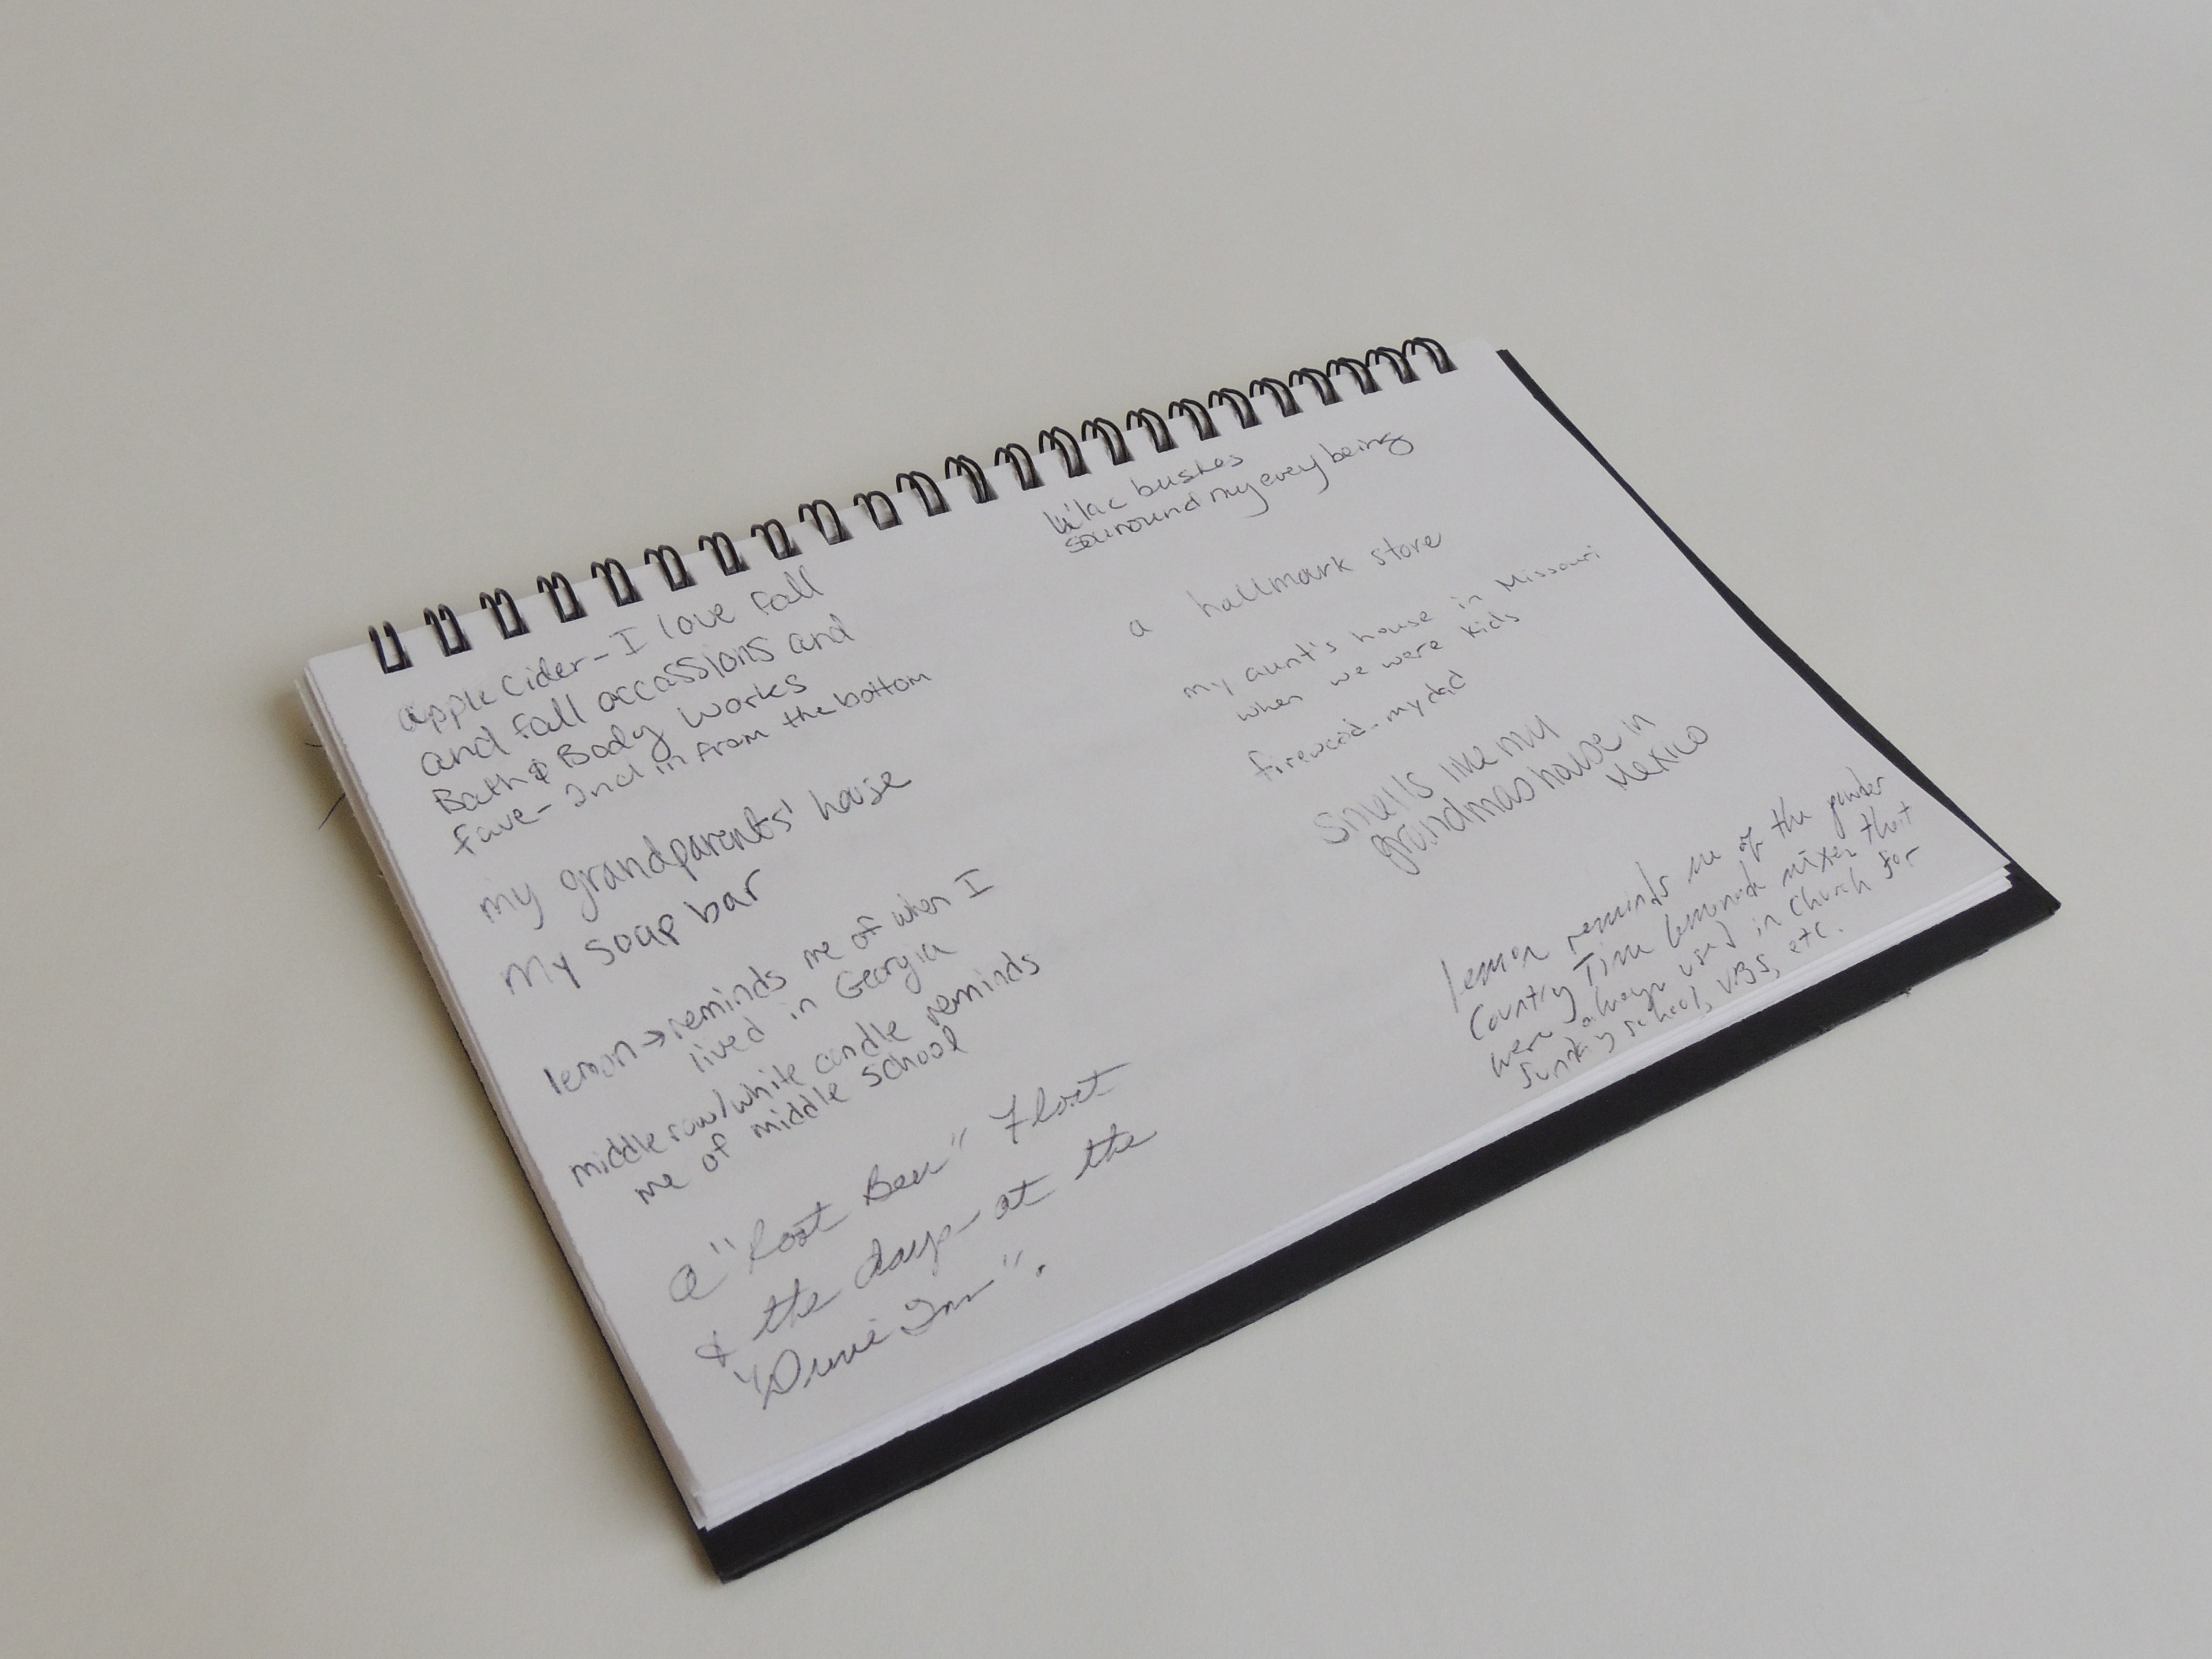 apple cider - I love fall
and fall accassions and
Bath & Body Works
fave - 2nd in from the bottom
my grandparents' house
my soap bar
lemon → reminds me of when I
lived in Georgia
middle row/white candle reminds
me of middle school
a "Root Beer" Float
& the days - at the
"Drive Inn".
lilac bushes
surround my every being
a hallmark store
my aunt's house in Missouri
when we were kids
firewood - my dad
smells like my
grandmas house in
Mexico
lemon reminds me of the powder
Country Time lemonade mixes that
were always used in church for
Sunday school, VBS, etc.